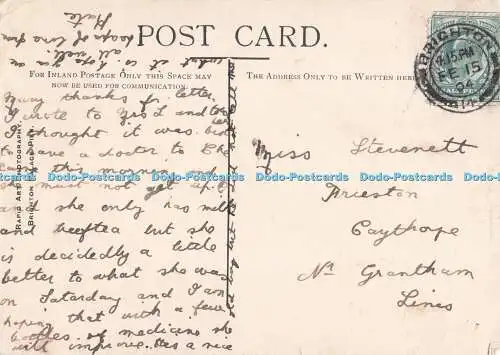 POST CARD.
FOR INLAND POSTAGE ONLY THIS SPACE MAY
NOW BE USED FOR COMMUNICATION.
THE ADDRESS ONLY TO BE WRITTEN HERE
RAPID ART PHOTOGRAPHY
BRIGHTON PALACE PIER
BRIGHTON
4.15 PM
FE 15
Many thanks for letter
I wrote to Mrs L and
I thought it was best
to have a doctor to
this morning and
she must not get up
and she only has milk
and beeftea but she
is decidedly a little
better to what she was
on Saturday and I am
hoping that with a few
bottles of medicine she
will improve. Its a nice
old
what it is. I hope
all well.
heaps of love from
Kate
Miss Stevenett
Frieston
Caythorpe
Nr Grantham
Lincs
Dodo-Postcards Dodo-Postcards Dodo-Postcards Dodo-Postcards Dodo-Postcards